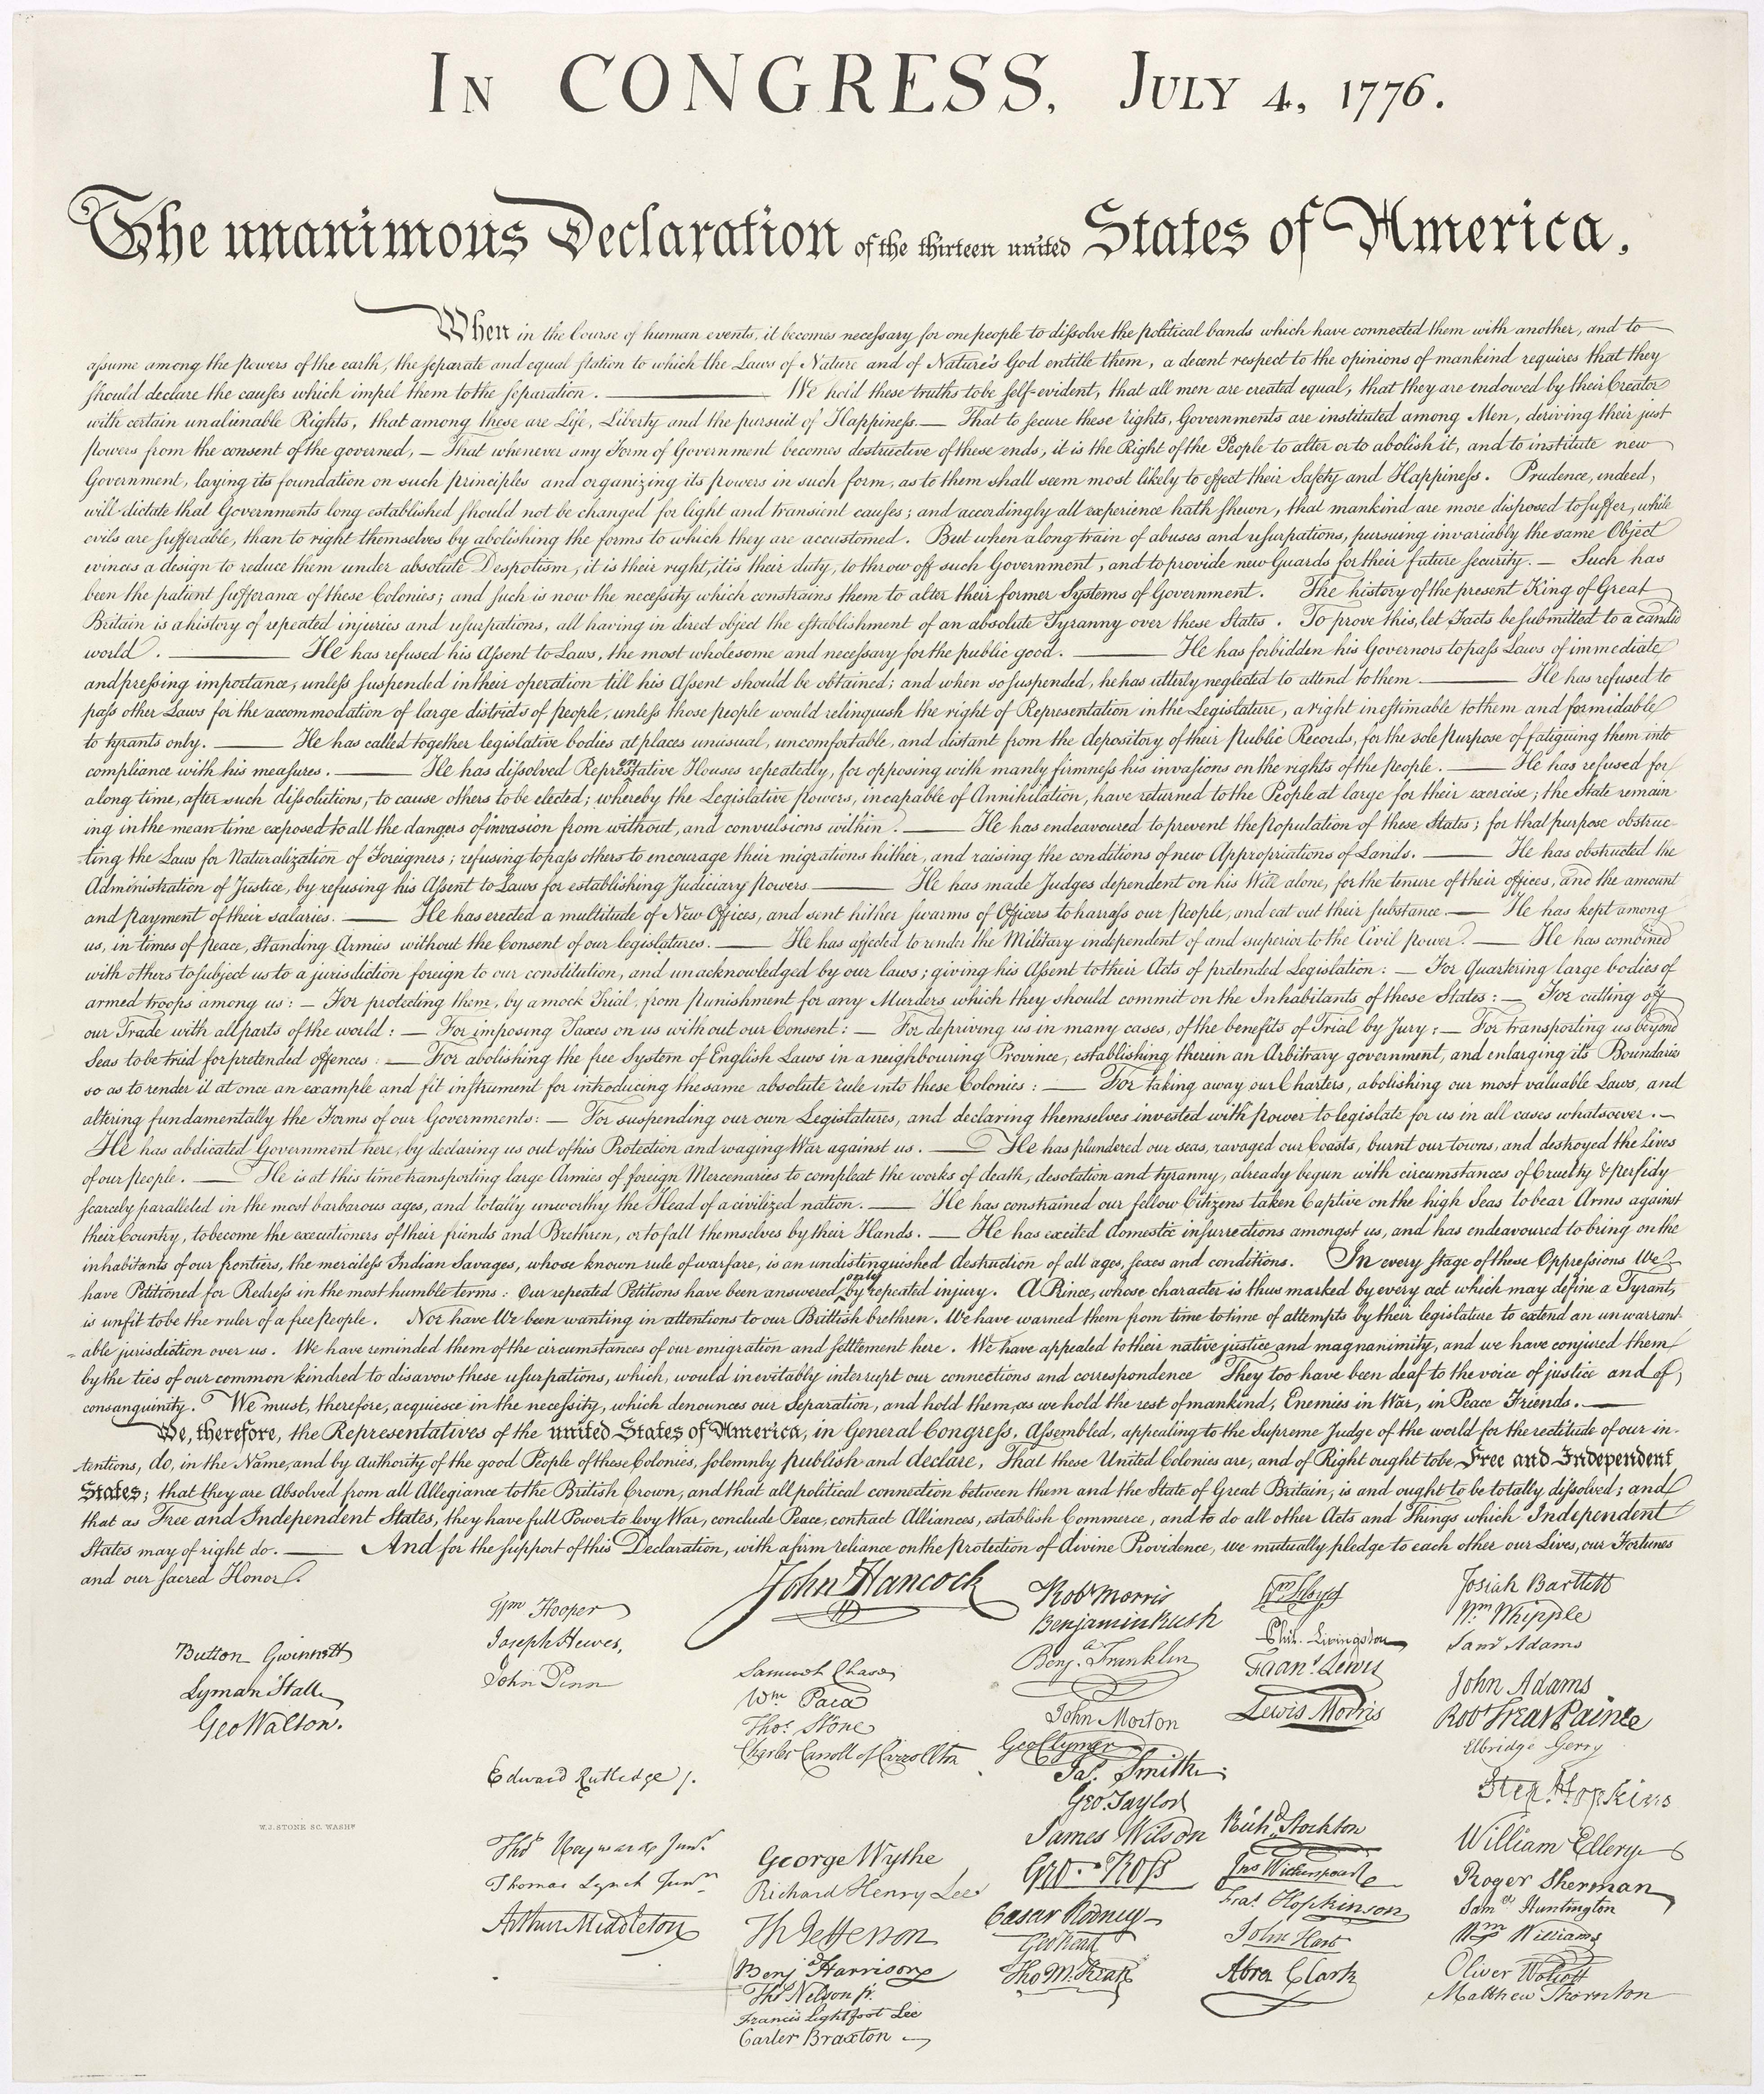 In CONGRESS, July 4, 1776.
The unanimous Declaration of the thirteen united States of America,
When in the Course of human events, it becomes necessary for one people to dissolve the political bands which have connected them with another, and to
assume among the powers of the earth, the separate and equal station to which the Laws of Nature and of Nature's God entitle them, a decent respect to the opinions of mankind requires that they
should declare the causes which impel them to the separation. ——— We hold these truths to be self-evident, that all men are created equal, that they are endowed by their Creator
with certain unalienable Rights, that among these are Life, Liberty and the pursuit of Happiness.— That to secure these rights, Governments are instituted among Men, deriving their just
powers from the consent of the governed, — That whenever any Form of Government becomes destructive of these ends, it is the Right of the People to alter or to abolish it, and to institute new
Government, laying its foundation on such principles and organizing its powers in such form, as to them shall seem most likely to effect their Safety and Happiness. Prudence, indeed,
will dictate that Governments long established should not be changed for light and transient causes; and accordingly all experience hath shewn, that mankind are more disposed to suffer, while
evils are sufferable, than to right themselves by abolishing the forms to which they are accustomed. But when a long train of abuses and usurpations, pursuing invariably the same Object
evinces a design to reduce them under absolute Despotism, it is their right, it is their duty, to throw off such Government, and to provide new Guards for their future security. — Such has
been the patient sufferance of these Colonies; and such is now the necessity which constrains them to alter their former Systems of Government. The history of the present King of Great
Britain is a history of repeated injuries and usurpations, all having in direct object the establishment of an absolute Tyranny over these States. To prove this, let Facts be submitted to a candid
world. ——— He has refused his Assent to Laws, the most wholesome and necessary for the public good. ——— He has forbidden his Governors to pass Laws of immediate
and pressing importance, unless suspended in their operation till his Assent should be obtained; and when so suspended, he has utterly neglected to attend to them. ——— He has refused to
pass other Laws for the accommodation of large districts of people, unless those people would relinquish the right of Representation in the Legislature, a right inestimable to them and formidable
to tyrants only. ——— He has called together legislative bodies at places unusual, uncomfortable, and distant from the depository of their Public Records, for the sole purpose of fatiguing them into
compliance with his measures. ——— He has dissolved Representative Houses repeatedly, for opposing with manly firmness his invasions on the rights of the people. ——— He has refused for
a long time, after such dissolutions, to cause others to be elected; whereby the Legislative powers, incapable of Annihilation, have returned to the People at large for their exercise; the State remain
ing in the mean time exposed to all the dangers of invasion from without, and convulsions within. ——— He has endeavoured to prevent the population of these States; for that purpose obstruc-
ting the Laws for Naturalization of Foreigners; refusing to pass others to encourage their migrations hither, and raising the conditions of new Appropriations of Lands. ——— He has obstructed the
Administration of Justice, by refusing his Assent to Laws for establishing Judiciary powers. ——— He has made Judges dependent on his Will alone, for the tenure of their offices, and the amount
and payment of their salaries. ——— He has erected a multitude of New Offices, and sent hither swarms of Officers to harrass our people, and eat out their substance. — He has kept among
us, in times of peace, Standing Armies without the Consent of our legislatures. ——— He has affected to render the Military independent of and superior to the Civil power. — He has combined
with others to subject us to a jurisdiction foreign to our constitution, and unacknowledged by our laws; giving his Assent to their Acts of pretended Legislation: — For Quartering large bodies of
armed troops among us: — For protecting them, by a mock Trial, from punishment for any Murders which they should commit on the Inhabitants of these States: — For cutting off
our Trade with all parts of the world: — For imposing Taxes on us without our Consent: — For depriving us in many cases, of the benefits of Trial by Jury: — For transporting us beyond
Seas to be tried for pretended offences: — For abolishing the free System of English Laws in a neighbouring Province, establishing therein an Arbitrary government, and enlarging its Boundaries
so as to render it at once an example and fit instrument for introducing the same absolute rule into these Colonies: — For taking away our Charters, abolishing our most valuable Laws, and
altering fundamentally the Forms of our Governments: — For suspending our own Legislatures, and declaring themselves invested with power to legislate for us in all cases whatsoever. —
He has abdicated Government here, by declaring us out of his Protection and waging War against us. — He has plundered our seas, ravaged our Coasts, burnt our towns, and destroyed the lives
of our people. — He is at this time transporting large Armies of foreign Mercenaries to compleat the works of death, desolation and tyranny, already begun with circumstances of Cruelty & perfidy
scarcely paralleled in the most barbarous ages, and totally unworthy the Head of a civilized nation. — He has constrained our fellow Citizens taken Captive on the high Seas to bear Arms against
their Country, to become the executioners of their friends and Brethren, or to fall themselves by their Hands. — He has excited domestic insurrections amongst us, and has endeavoured to bring on the
inhabitants of our frontiers, the merciless Indian Savages, whose known rule of warfare, is an undistinguished destruction of all ages, sexes and conditions. In every stage of these Oppressions We
have Petitioned for Redress in the most humble terms: Our repeated Petitions have been answered only by repeated injury. A Prince, whose character is thus marked by every act which may define a Tyrant,
is unfit to be the ruler of a free people. Nor have We been wanting in attentions to our Brittish brethren. We have warned them from time to time of attempts by their legislature to extend an unwarrant-
able jurisdiction over us. We have reminded them of the circumstances of our emigration and settlement here. We have appealed to their native justice and magnanimity, and we have conjured them
by the ties of our common kindred to disavow these usurpations, which, would inevitably interrupt our connections and correspondence They too have been deaf to the voice of justice and of
consanguinity. We must, therefore, acquiesce in the necessity, which denounces our Separation, and hold them, as we hold the rest of mankind, Enemies in War, in Peace Friends. —
We, therefore, the Representatives of the united States of America, in General Congress, Assembled, appealing to the Supreme Judge of the world for the rectitude of our in-
tentions, do, in the Name, and by Authority of the good People of these Colonies, solemnly publish and declare, That these United Colonies are, and of Right ought to be Free and Independent
States; that they are Absolved from all Allegiance to the British Crown, and that all political connection between them and the State of Great Britain, is and ought to be totally dissolved; and
that as Free and Independent States, they have full Power to levy War, conclude Peace, contract Alliances, establish Commerce, and to do all other Acts and Things which Independent
States may of right do. — And for the support of this Declaration, with a firm reliance on the protection of divine Providence, we mutually pledge to each other our Lives, our Fortunes
and our sacred Honor.
Button Gwinnett
Lyman Hall
Geo Walton.
W.J. STONE SC. WASHN
Wm Hooper
Joseph Hewes,
John Penn
Edward Rutledge /.
Thos Heyward Junr.
Thomas Lynch Junr.
Arthur Middleton
John Hancock
Samuel Chase
Wm. Paca
Thos. Stone
Charles Carroll of Carrollton
George Wythe
Richard Henry Lee
Th Jefferson
Benj Harrison
Thos Nelson jr.
Francis Lightfoot Lee
Carter Braxton
Robt Morris
Benjamin Rush
Benj. Franklin
John Morton
Geo Clymer
Jas. Smith.
Geo. Taylor
James Wilson
Geo. Ross
Caesar Rodney
Geo Read
Tho M:Kean
Wm Floyd
Phil. Livingston
Frans. Lewis
Lewis Morris
Richd. Stockton
Jno Witherspoon
Fras. Hopkinson
John Hart
Abra Clark
Josiah Bartlett
Wm. Whipple
Saml Adams
John Adams
Robt Treat Paine
Elbridge Gerry
Step. Hopkins
William Ellery
Roger Sherman
Saml Huntington
Wm Williams
Oliver Wolcott
Matthew Thornton